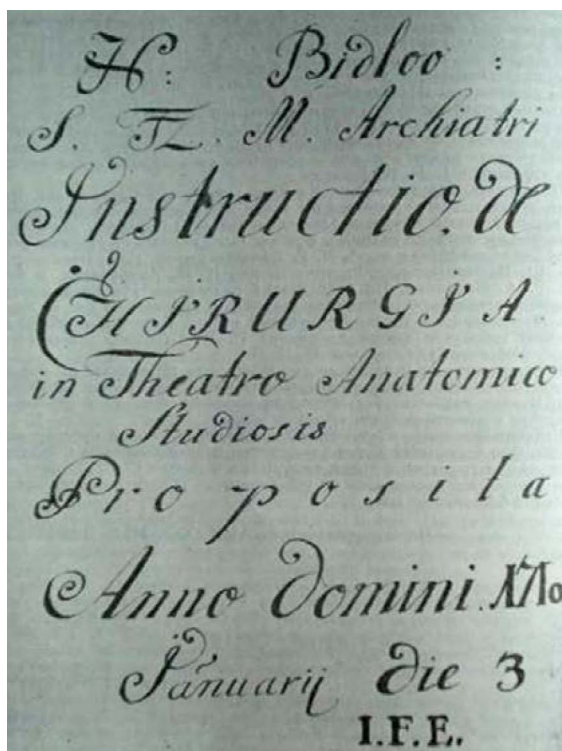 H: Bidloo :
S. TZ. M. Archiatri
Instructio. de
CHIRURGIA
in Theatro Anatomico
Studiosis
Proposita
Anno Domini. 1710
Januarij die 3
I.F.E.